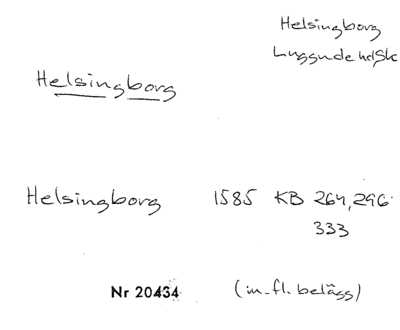 Helsingborg
Luggude hd Sk
Helsingborg
Helsingborg 1585 KB 264, 296
333
Nr 20434 (m. fl. belägg)